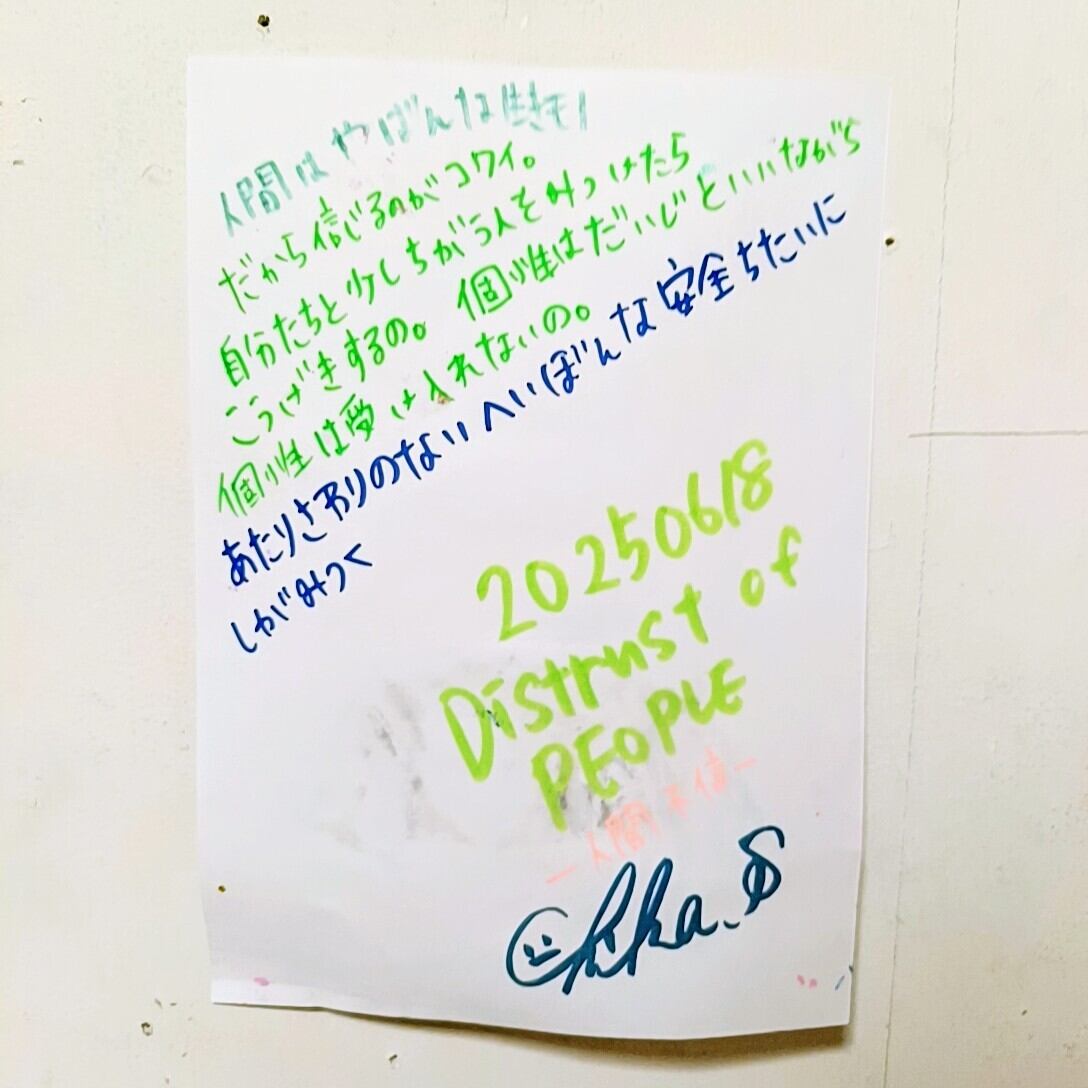 人間はやばんな生きモノ
だから信じるのがコワイ。
自分たちと少しちがう人をみつけたら
こうげきするの。個性はだいじといいながら
個性は受け入れないの。
あたりさわりのないへいぼんな安全ちたいに
しがみつく
20250618
Distrust of
PEOPLE
—人間不信—